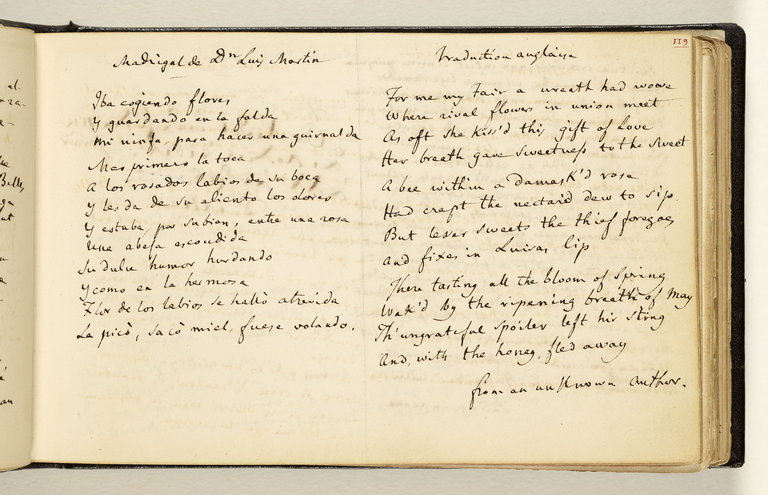 119
Madrigal de Dn Luis Martin
Iba cogiendo flores
y guardando en la falda
mi ninfa, para hacer una guirnalda
Mas primero la toca
a los rosados labios de su boca
y les da de su aliento los olores
y estaba, por su bien, entre una rosa
una abeja escondida
su dulce humor hurdando
y como en la hermosa
Flor de los labios se halló atrevida
La picò, sacò miel, fuese volando.
Traduction anglaise
For me my Fair a wreath had wove
Where rival flowers in union meet
As oft she kiss'd this gift of love
Her breath gave sweetness to the sweet
A bee within a damask'd rose
Had crept the nectar'd dew to sip
But lesser sweets the thief foregoes
And fixes in Luisas lip
There tasting all the bloom of spring
Wak'd by the ripening breath of May
Th' ungrateful spoiler left his sting
And, with the honey, fled away
from an unknown author.
Bells,